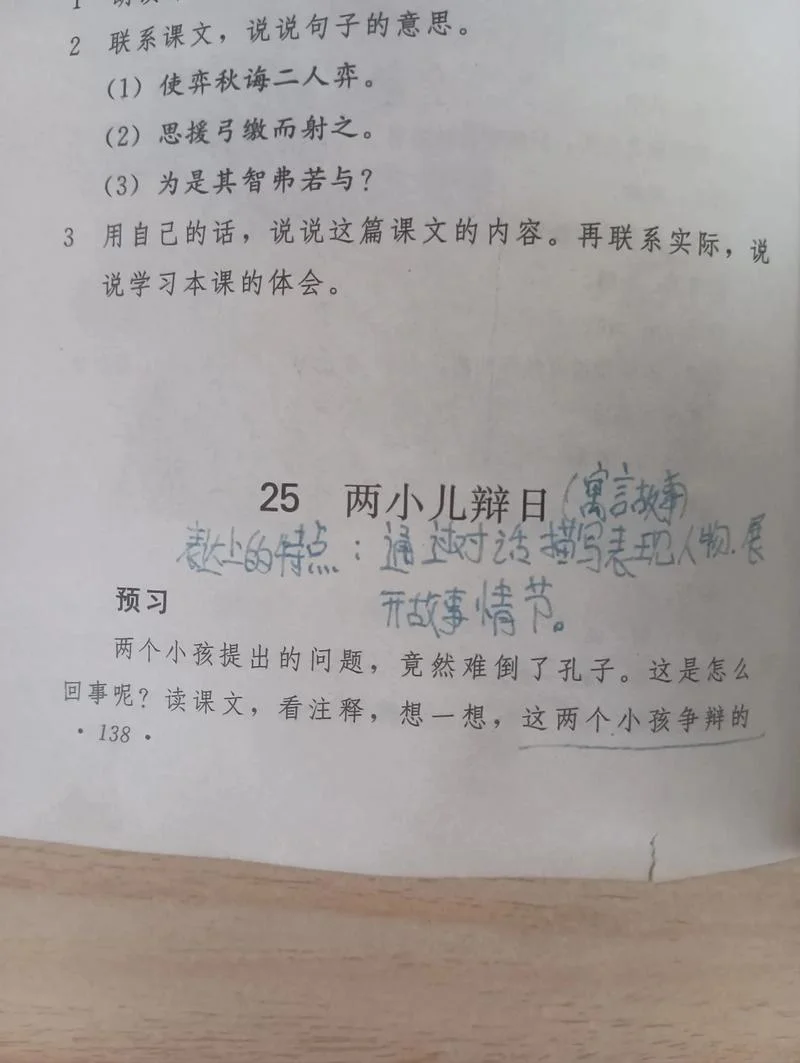 2 联系课文，说说句子的意思。
(1) 使弈秋诲二人弈。
(2) 思援弓缴而射之。
(3) 为是其智弗若与？
3 用自己的话，说说这篇课文的内容。再联系实际，说
说学习本课的体会。
25 两小儿辩日 (寓言故事)
表达上的特点：通过对话描写表现人物.展
开故事情节。
预习
两个小孩提出的问题，竟然难倒了孔子。这是怎么
回事呢？读课文，看注释，想一想，这两个小孩争辩的
· 138 ·